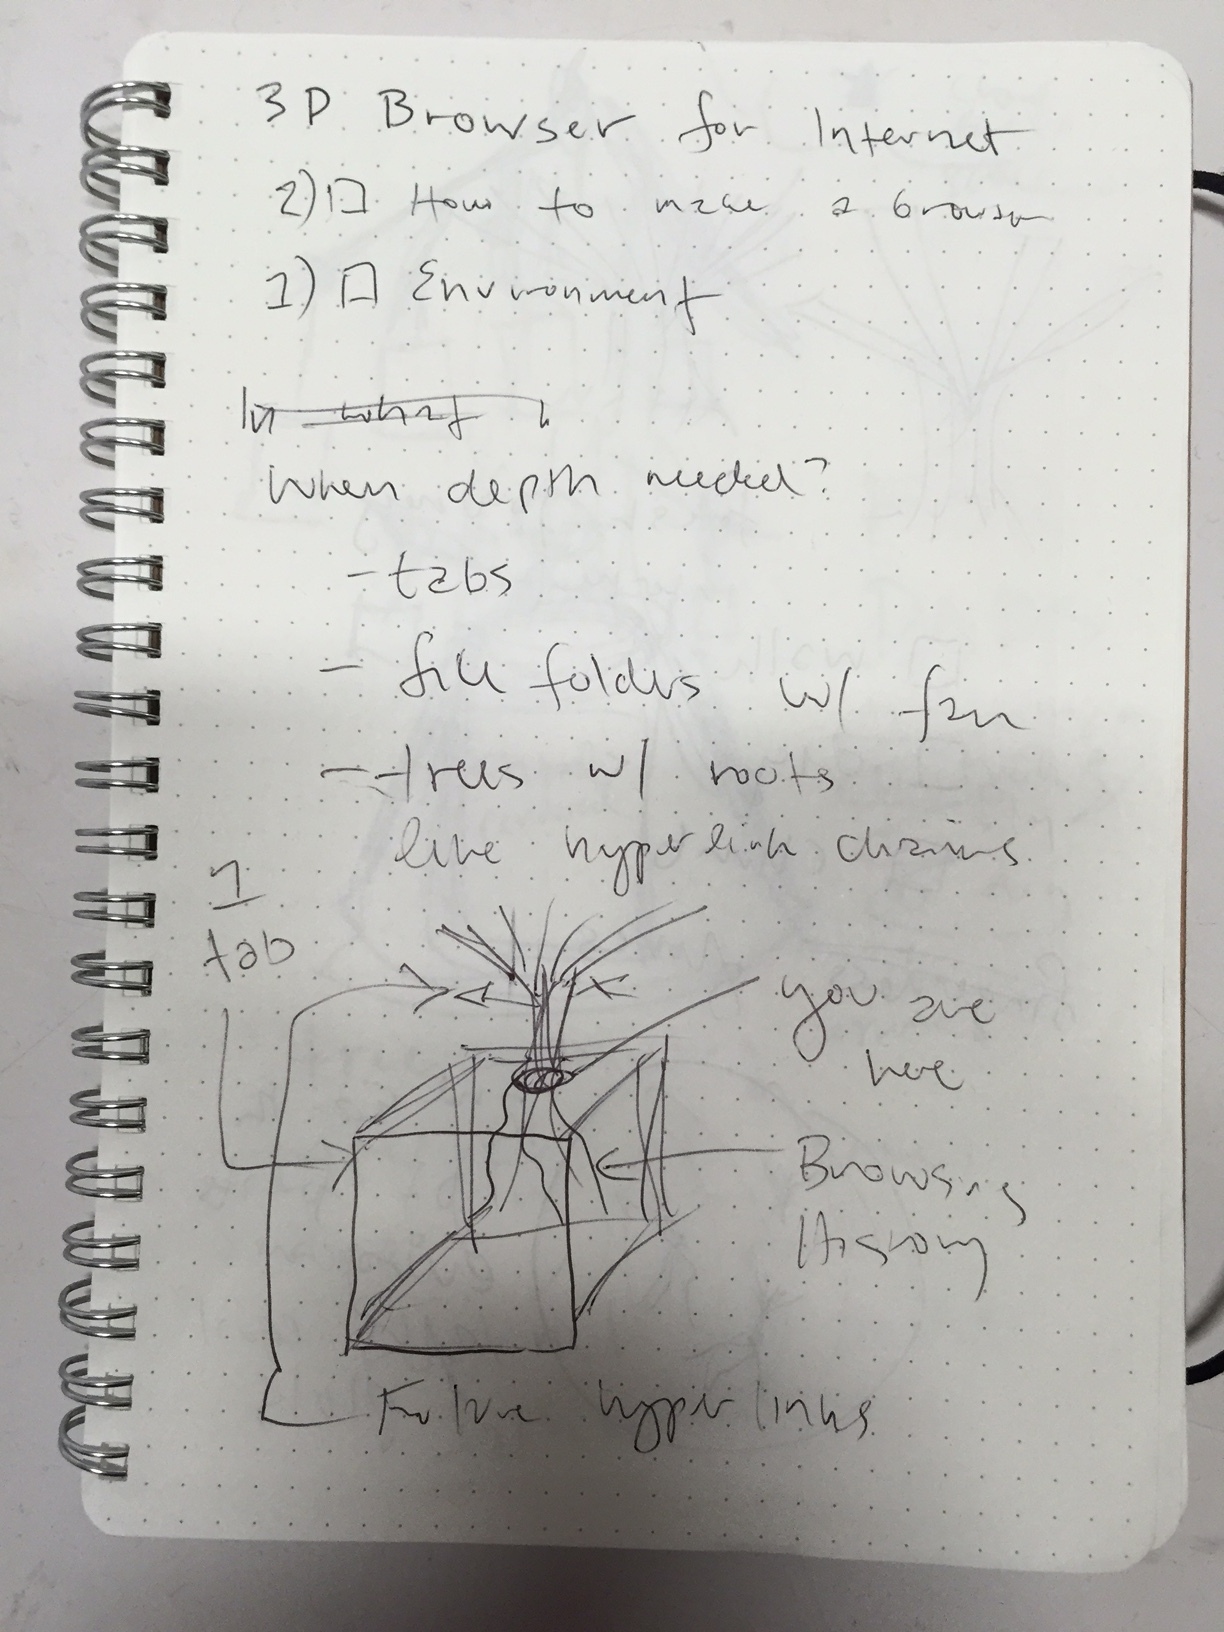 3D Browser for Internet
2) □ How to make a brows
1) □ Environment
In what
When depth needed?
- tabs
- file folders w/ fan
- trees w/ roots
like hyperlink chains
1
tab
you are
here
Browsing
History
Future hyperlinks